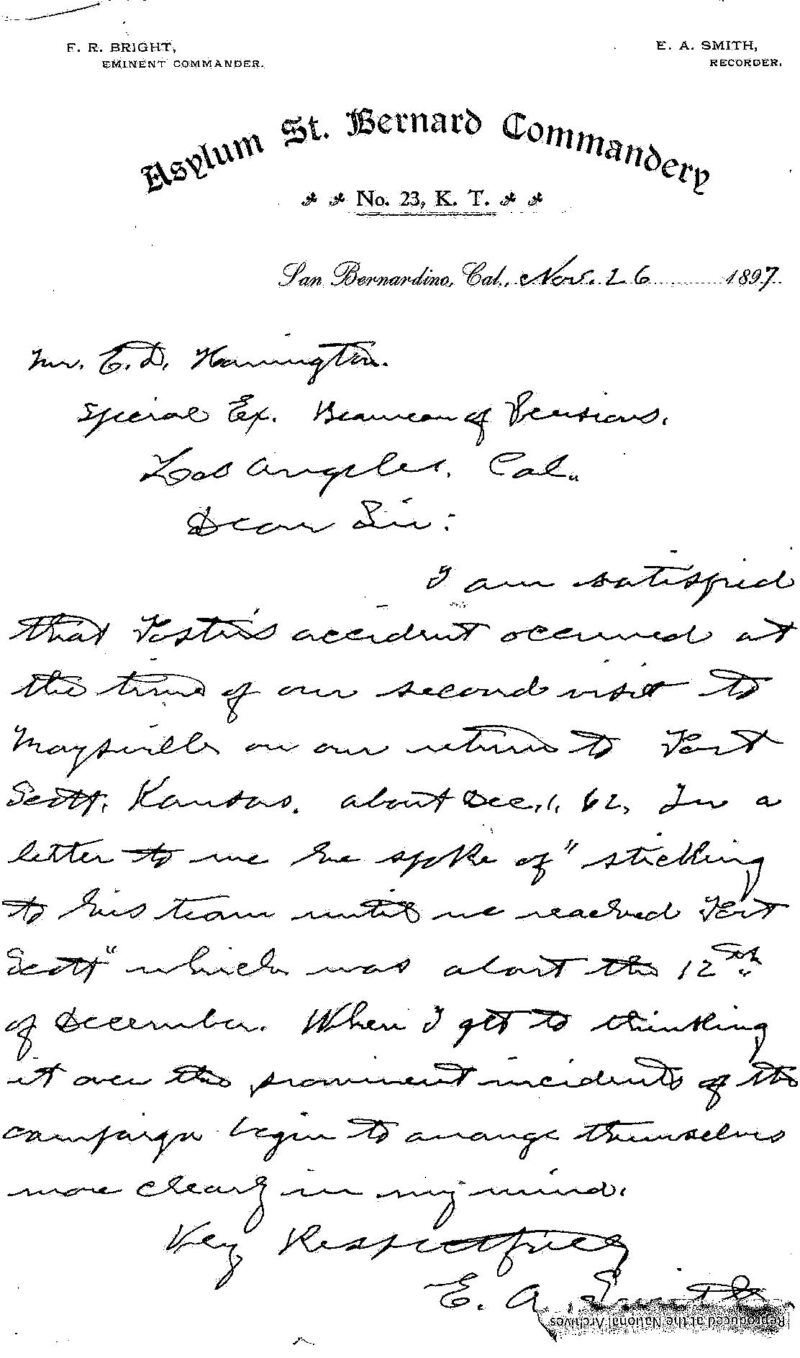 F. R. BRIGHT,
EMINENT COMMANDER.
E. A. SMITH,
RECORDER.
Asylum St. Bernard Commandery
No. 23, K. T.
San Bernardino, Cal., Nov. 26 1897.
Mr. E. D. Harrington.
Special Ex. Beaureau of Pensions.
Los Angeles, Cal.
Dear Sir:
I am satisfied
that Foster's accident occurred at
the time of our second visit to
Maysville on our return to Fort
Scott, Kansas, about Dec, 1, 62, In a
letter to me he spoke of "sticking
to his team until we reached Fort
Scott" which was about the 12th
of December. When I get to thinking
it over the prominent incidents of the
campaign begin to arrange themselves
more clearly in my mind.
Very Respectfully
E. A. Smith
Reproduced at the National Archives